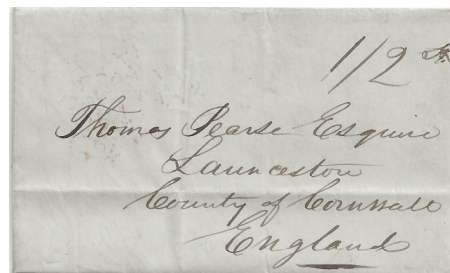 1/2
Thomas Pearse Esquire
Launceston
County of Cornwall
England